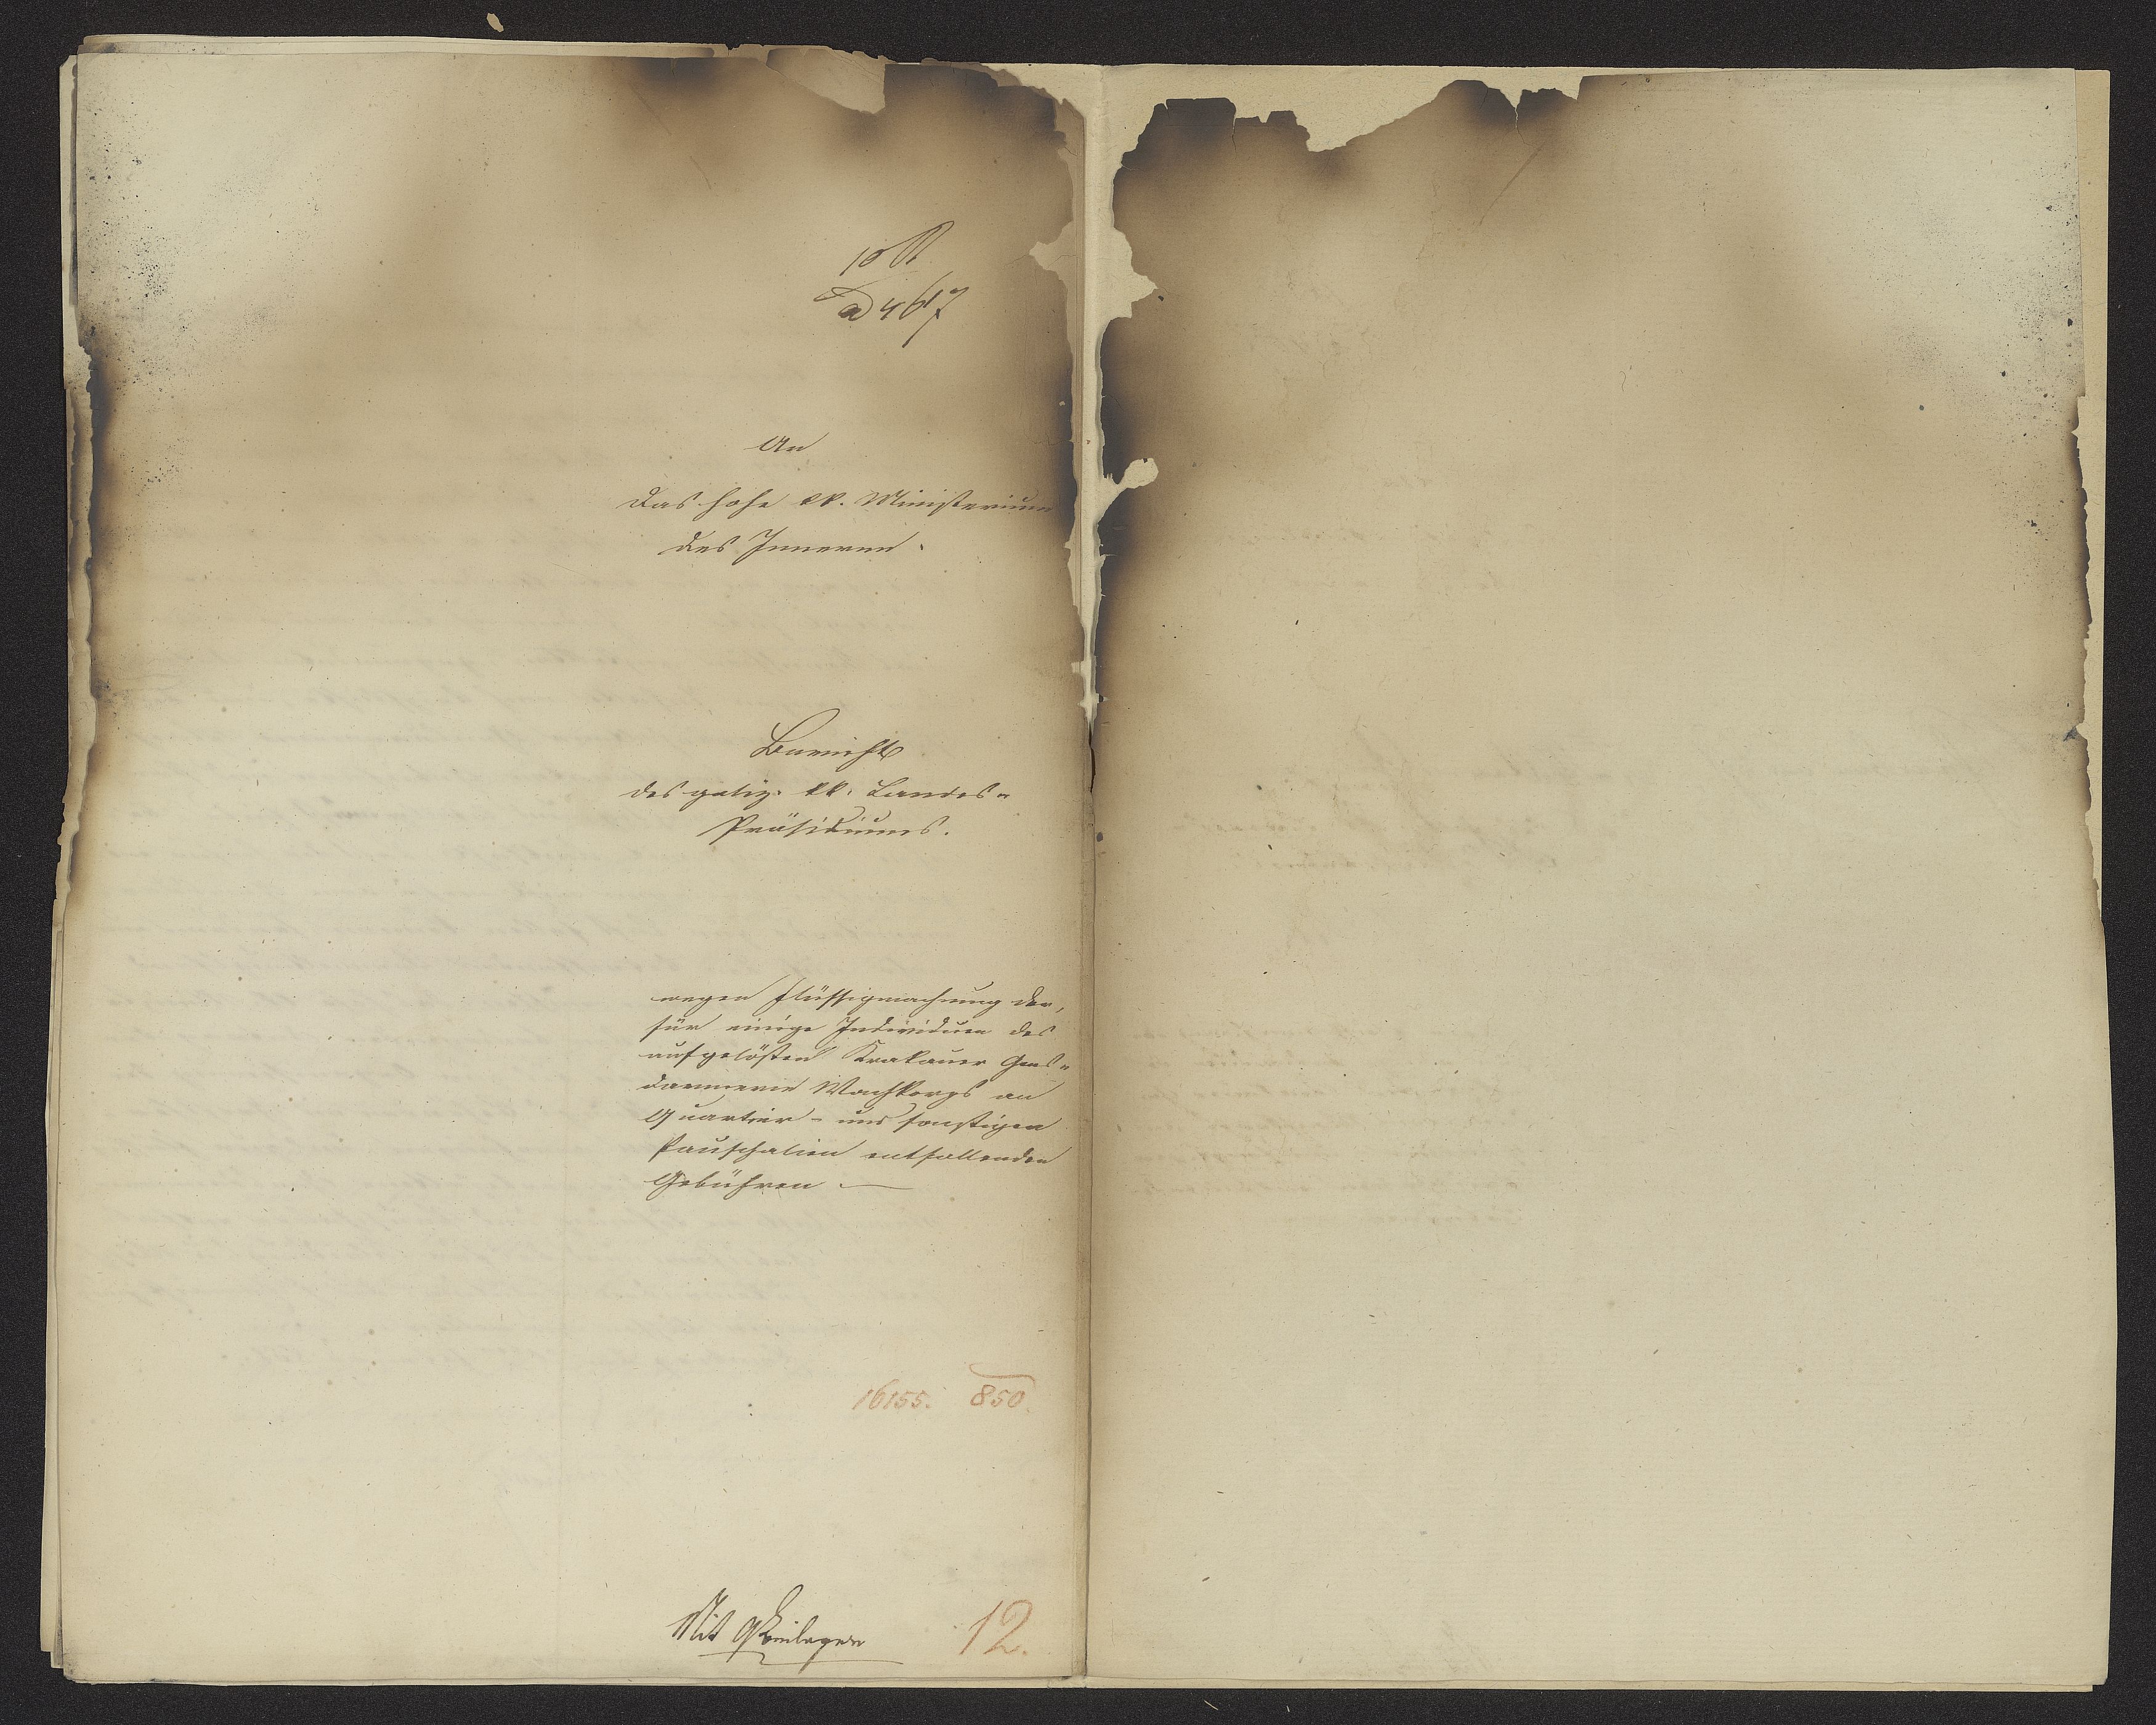 An
das hohe kk. Ministerium
des Inneren.
Bericht
des galiz. kk. Landes-
Präsidiums.
wegen Flüssigmachung der,
für einige Individuen des
aufgelösten Krakauer Gens-
darmerie Wachkorps an
Quartier- und sonstigen
Pauschalien entfallenden
Gebühren.
16155. 850.
Mit 9 Beilagen 12.